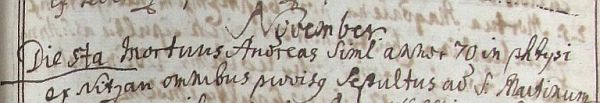 November
Die 5ta Mortuus Andreas Siml annor 70 in phtysi
ex Nitzan omnibus provisq sepultus ad S. Martinum